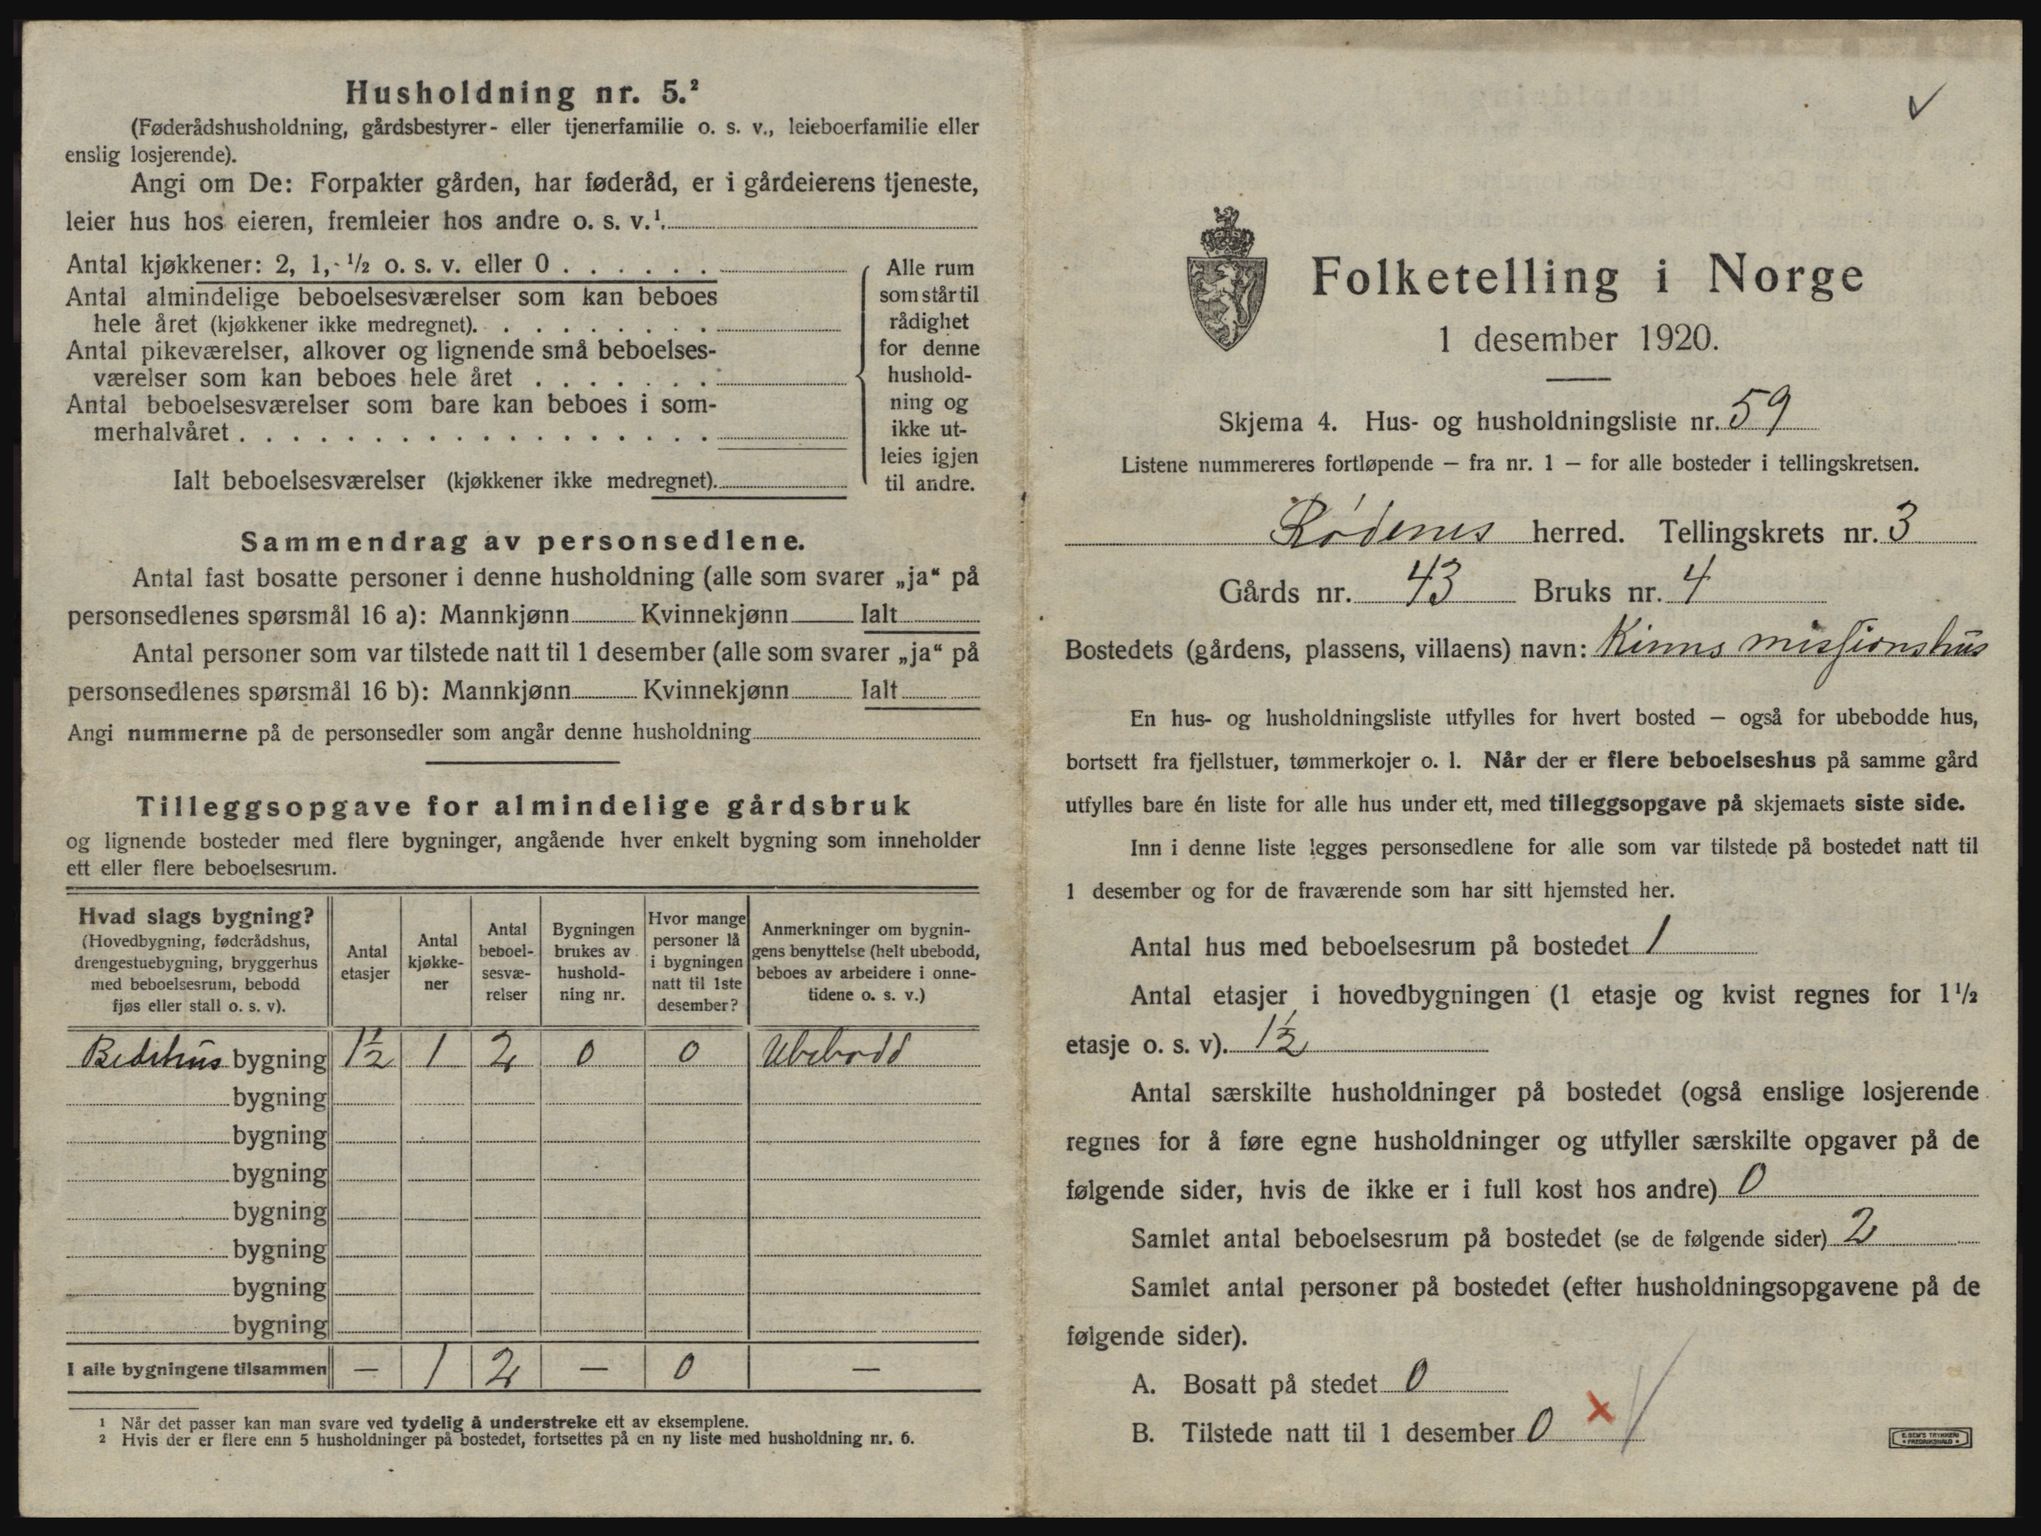 Husholdning nr. 5.²
(Føderådshusholdning, gårdsbestyrer- eller tjenerfamilie o. s. v., leieboerfamilie eller
enslig losjerende).
Angi om De: Forpakter gården, har føderåd, er i gårdeierens tjeneste,
leier hus hos eieren, fremleier hos andre o. s. v.¹.
Antal kjøkkener: 2, 1, ½ o. s. v. eller 0
Antal almindelige beboelsesværelser som kan beboes
hele året (kjøkkener ikke medregnet).
Antal pikeværelser, alkover og lignende små beboelses-
værelser som kan beboes hele året
Antal beboelsesværelser som bare kan beboes i som-
merhalvåret
Ialt beboelsesværelser (kjøkkener ikke medregnet).
Alle rum
som står til
rådighet
for denne
hushold-
ning og
ikke ut-
leies igjen
til andre.
Sammendrag av personsedlene.
Antal fast bosatte personer i denne husholdning (alle som svarer „ja“ på
personsedlenes spørsmål 16 a): Mannkjønn Kvinnekjønn Ialt
Antal personer som var tilstede natt til 1 desember (alle som svarer „ja“ på
personsedlenes spørsmål 16 b): Mannkjønn Kvinnekjønn Ialt
Angi nummerne på de personsedler som angår denne husholdning
Tilleggsopgave for almindelige gårdsbruk
og lignende bosteder med flere bygninger, angående hver enkelt bygning som inneholder
ett eller flere beboelsesrum.
Hvad slags bygning?
(Hovedbygning, føderådshus,
drengestuebygning, bryggerhus
med beboelsesrum, bebodd
fjøs eller stall o. s. v).
Antal
etasjer
Antal
kjøkke-
ner
Antal
beboel-
sesvæ-
relser
Bygningen
brukes av
hushold-
ning nr.
Hvor mange
personer lå
i bygningen
natt til 1ste
desember?
Anmerkninger om bygnin-
gens benyttelse (helt ubebodd,
beboes av arbeidere i onne-
tidene o. s. v.)
Bedehus bygning 1½ 1 2 0 0 Ubebodd
bygning
bygning
bygning
bygning
bygning
bygning
bygning
I alle bygningene tilsammen — 1 2 — 0 —
¹ Når det passer kan man svare ved tydelig å understreke ett av eksemplene.
² Hvis der er flere enn 5 husholdninger på bostedet, fortsettes på en ny liste med husholdning nr. 6.
Folketelling i Norge
1 desember 1920.
Skjema 4. Hus- og husholdningsliste nr. 59
Listene nummereres fortløpende – fra nr. 1 – for alle bosteder i tellingskretsen.
Rødenes herred. Tellingskrets nr. 3
Gårds nr. 43 Bruks nr. 4
Bostedets (gårdens, plassens, villaens) navn: Kinns missjonshus
En hus- og husholdningsliste utfylles for hvert bosted – også for ubebodde hus,
bortsett fra fjellstuer, tømmerkojer o. l. Når der er flere beboelseshus på samme gård
utfylles bare én liste for alle hus under ett, med tilleggsopgave på skjemaets siste side.
Inn i denne liste legges personsedlene for alle som var tilstede på bostedet natt til
1 desember og for de fraværende som har sitt hjemsted her.
Antal hus med beboelsesrum på bostedet 1
Antal etasjer i hovedbygningen (1 etasje og kvist regnes for 1½
etasje o. s. v). 1½
Antal særskilte husholdninger på bostedet (også enslige losjerende
regnes for å føre egne husholdninger og utfyller særskilte opgaver på de
følgende sider, hvis de ikke er i full kost hos andre) 0
Samlet antal beboelsesrum på bostedet (se de følgende sider) 2
Samlet antal personer på bostedet (efter husholdningsopgavene på de
følgende sider).
A. Bosatt på stedet 0
B. Tilstede natt til 1 desember 0